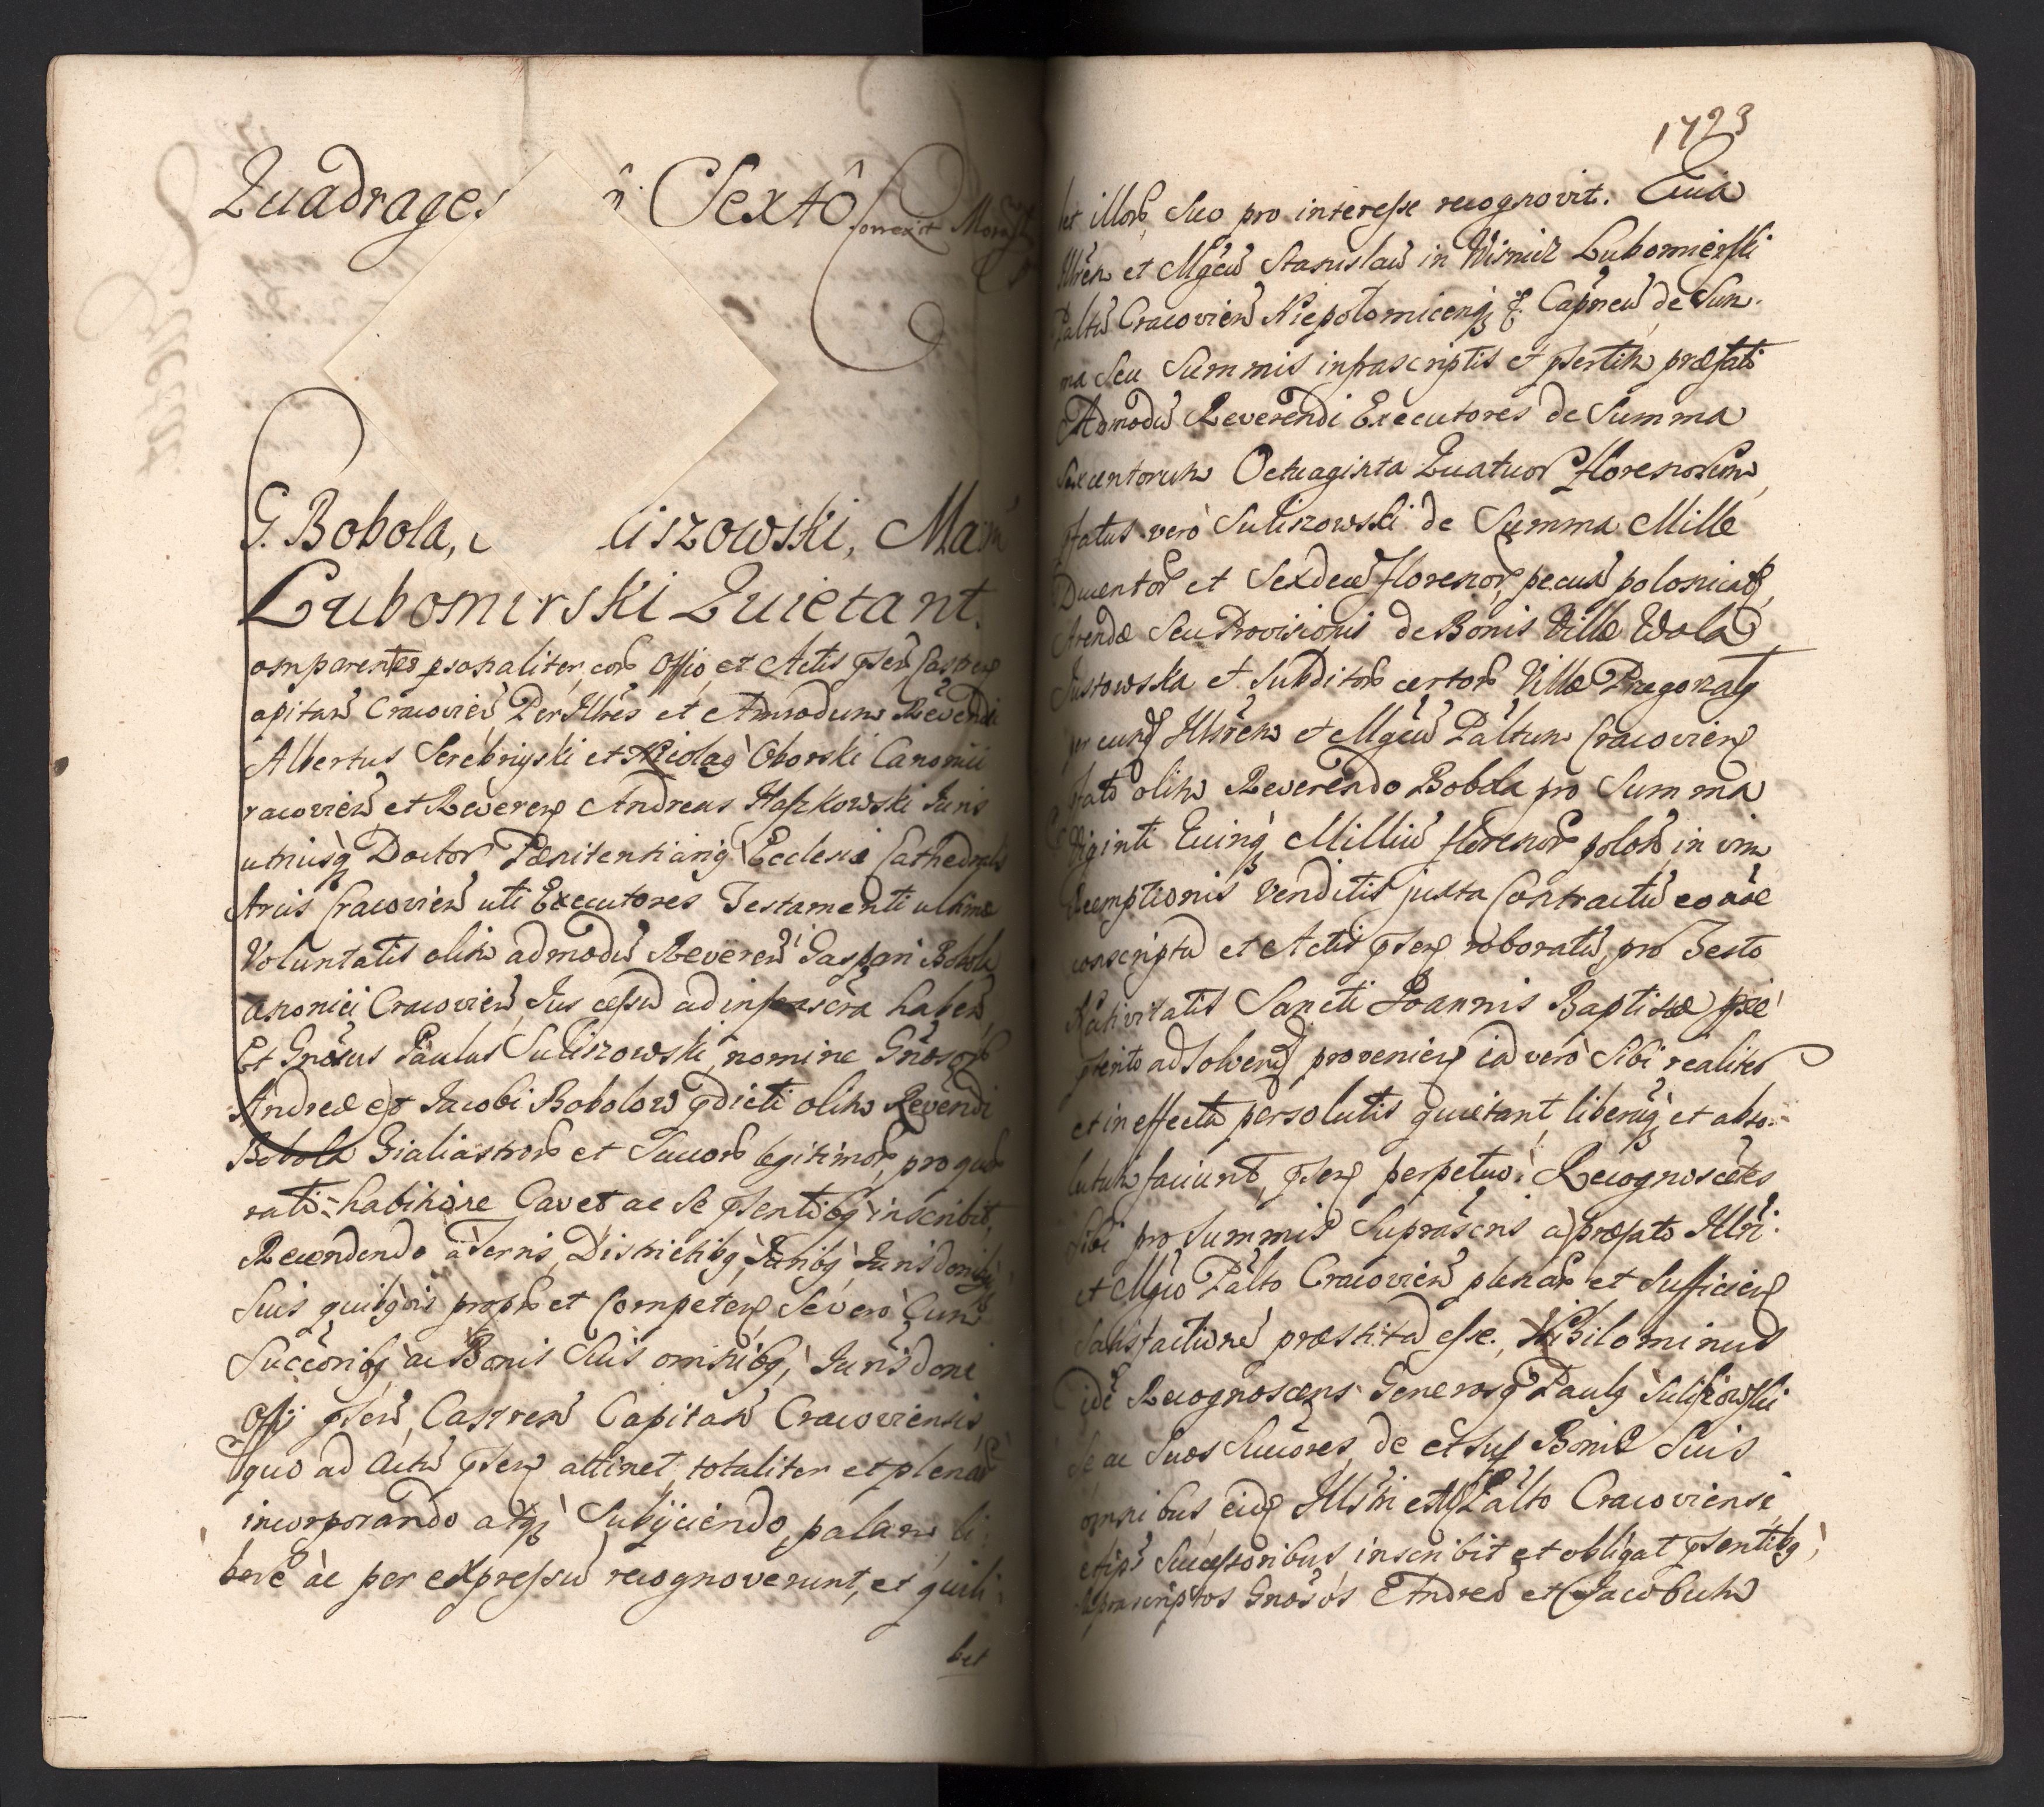 Quadrages
Sextô Correxit
G. Bobola, iszowski, Mag
Lubomirski Quietant.
omparentes psonaliter, cor Offio, et Actis pser Castren
apitan Cracovien PerIllres et Admodum Reverendi
Albertus Serebriyski et Nicolaq Oborski Canonici
racovien et Reveren Andreas Juris
utriusq Doctor Pænitentiariq Ecclesiæ Cathedralis
Arcis Cracovien uti Executores Testamenti ultimæ
Voluntatis olim admodu Reveren Gaspari Bobola
anonici Cracovien, Jus cessu ad infrascra haben,
Et Gnosus Paulus Suliszowski, nomine Gnosor
Andreæ et Jacobi Bobolow pdicti olim Revendi
Bobola et Succor legitimor, pro quor
rati=habitione Cavet ac se psentibq inscribit,
Recendendo a Terris, Districtibq, Juribq, Jurisdonibq
Suis quibqvis proprys et Competen, Se vero Cum
Succoribq ac Bonis Suis omnibq, Jurisdoni
Offij psen, Castren Capitan Cracoviensis,
quo ad Actu psen attinet, totaliter et plenar
incorporando atq Subijciendo, palam li:
bere ac per expressu recognoverunt, et quili:
bet
1723
bet illor, suo pro interesse recognovit. Quia
Illrem et Mgcu Stanislau in Wisnicz Lubomierski
Paltu Cracovien Niepolomicenq &. Capneu de Sum
ma Seu Summis infrascriptis et psertim præfati
Admodu Reverendi Executores de Summa
Sexcentorum Octuaginta Quatuor florenorum,
pfatus vero Suliszowski de Summa Mille
Ducentor et Sexdecem florenor, pecun polonicalq,
Arendæ Seu Provisionis de Bonis Villæ Wola
Justowska et Subditor certor Villæ Przegorzaly
per eund Illrem et Mgcu Paltum Cracovien
pfato olim Reverendo Bobola pro Summa
Viginti Quinq Milliu florenor polon, in vim
Reemptionis Venditis juxta Contractu eo
conscriptu et Actis psen roboratu, pro Festo
Nativitatis Sancti Joannis Baptistæ
psenti adsolvend provenien, ea vero Sibi realiter
et in effectu persolutis quietant, liberuq, et abso:
lutum faciunt, psen perpetuo. Recognoscetes
Sibi pro Summis Suprascris a præfato Illri
et Mgco Palto Cracovien plenar et Sufficien
Satisfactione præstitu esse. Nihilominus
ide Recognoscens Generosq Paulq Suliszowski
Se ac Suos Succores, de et sup Bonis Suis
omnibus eid Illri et Mg Palto Cracoviensi
et ips Successoribus, inscribit et obligat psentibq,
Suprascriptos Gnosos Andreā et Jacobum